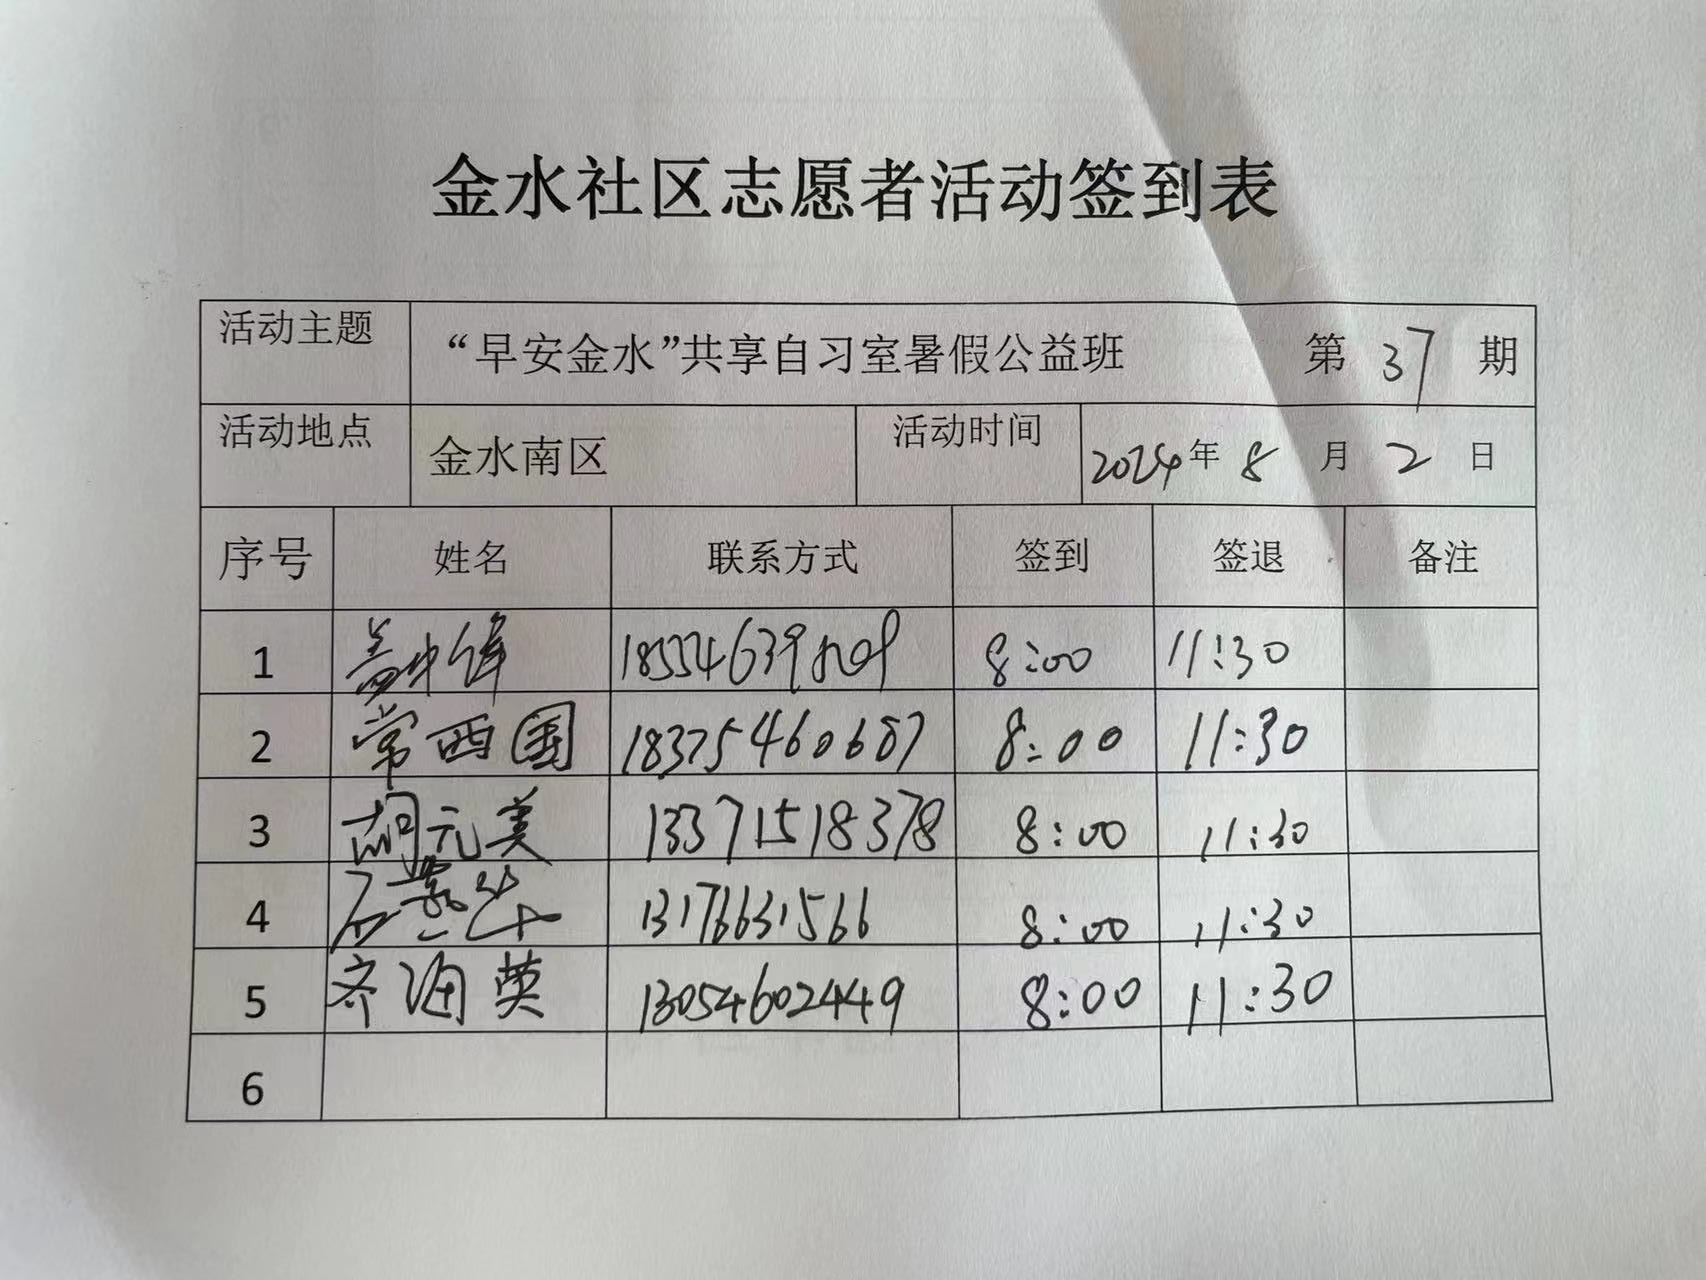 金水社区志愿者活动签到表
活动主题 “早安金水”共享自习室暑假公益班 第 37 期
活动地点 金水南区 活动时间 2024年 8 月 2 日
序号 姓名 联系方式 签到 签退 备注
1 盖中锋 8:00 11:30
2 常西国 18375460687 8:00 11:30
3 胡元美 13371518378 8:00 11:30
4 石景华 13176631566 8:00 11:30
5 齐海英 13054602449 8:00 11:30
6